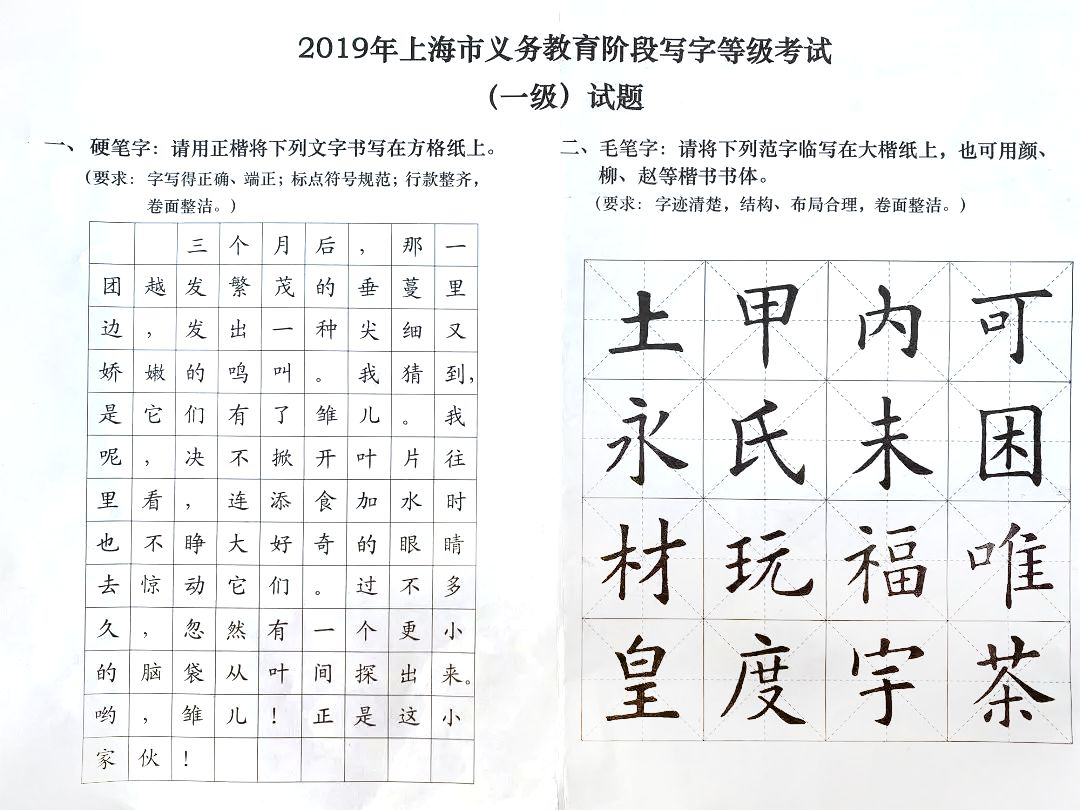 2019年上海市义务教育阶段写字等级考试
（一级）试题
一、硬笔字：请用正楷将下列文字书写在方格纸上。
（要求：字写得正确、端正；标点符号规范；行款整齐，
卷面整洁。）
三个月后，那一
团越发繁茂的垂蔓里
边，发出一种尖细又
娇嫩的鸣叫。我猜到，
是它们有了雏儿。我
呢，决不掀开叶片往
里看，连添食加水时
也不睁大好奇的眼睛
去惊动它们。过不多
久，忽然有一个更小
的脑袋从叶间探出来。
哟，雏儿！正是这小
家伙！
二、毛笔字：请将下列范字临写在大楷纸上，也可用颜、
柳、赵等楷书书体。
（要求：字迹清楚，结构、布局合理，卷面整洁。）
土甲内可
永氏未困
材玩福唯
皇度宇茶